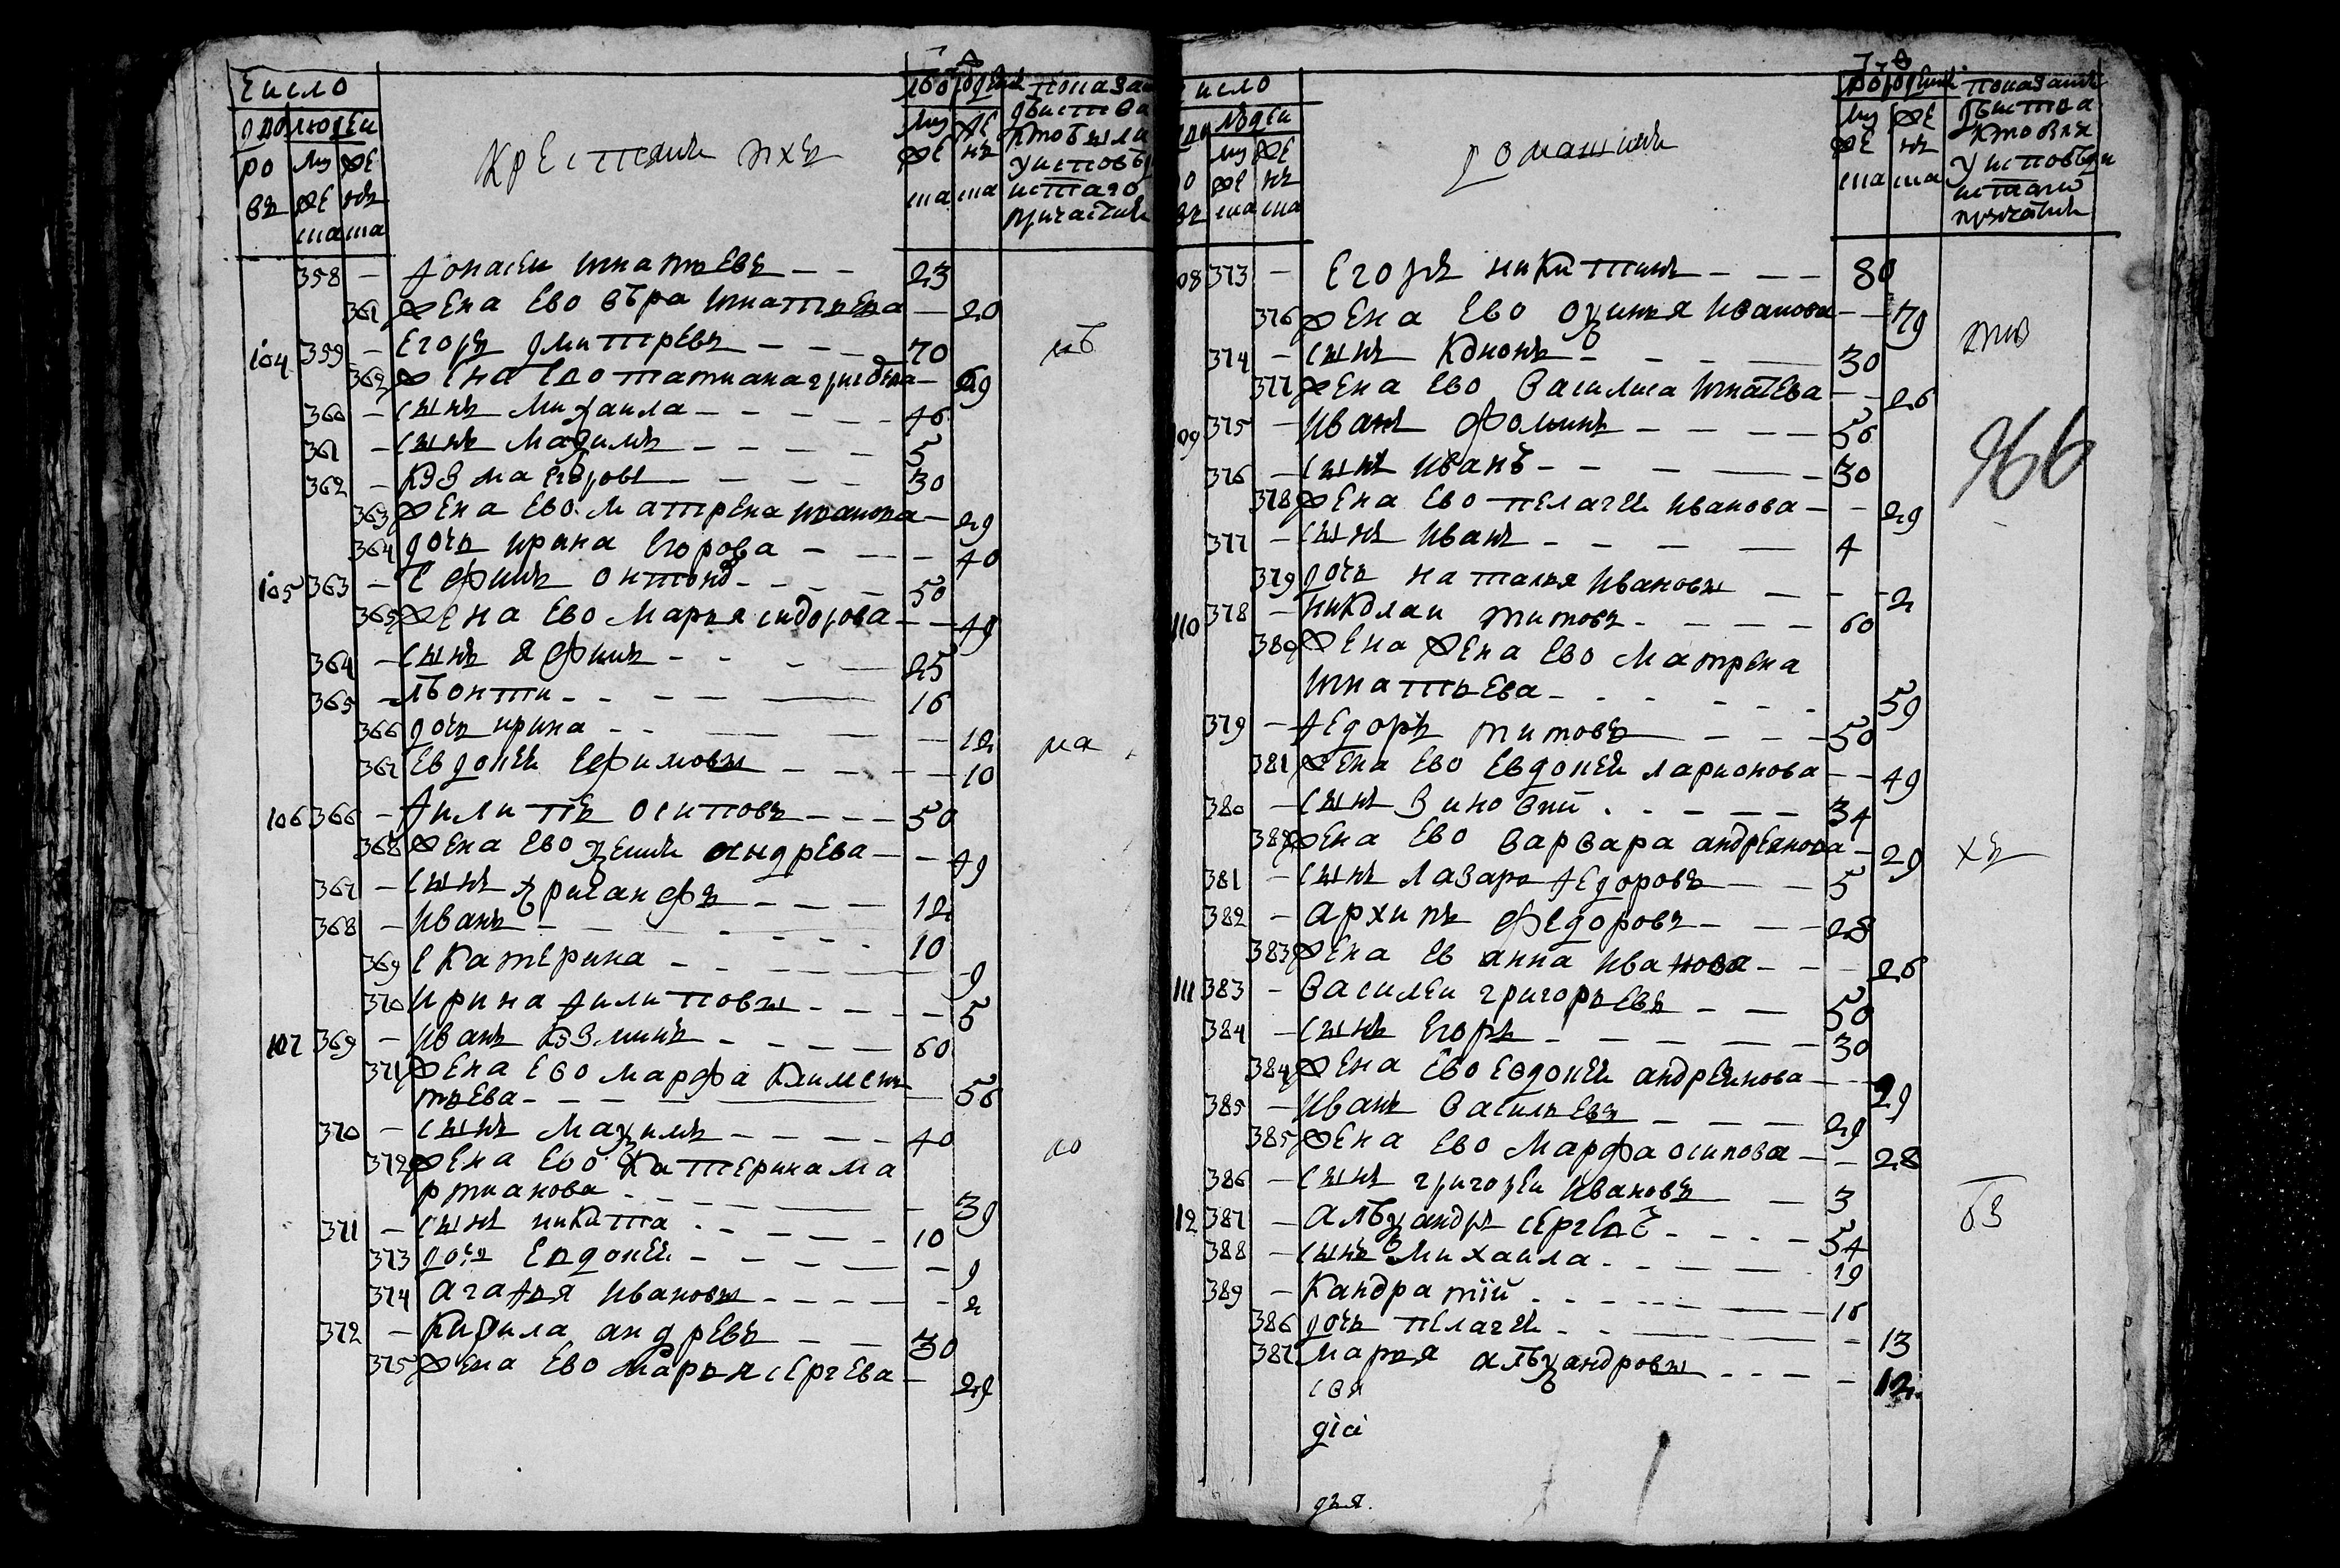 число
дво людеи
ро му же
въ же нъ
ша ша
крестяни ихъ
от рождения
му же
же нъ
ша ша
показани
действа
кто были
у исповеди
и стаго
причастия
358 — Ѳонасеи игнатьевъ — — 23
361 жена ево вѣра игнатьева — 20
104 359 — егоръ дмитревъ — — — 70
362 жена ево татиана григорева — 69
360 — сынъ михаила — — — 46
361 — сынъ маѯимъ — — — — 5
362 — кузма егоровъ — — — — 30
363 жена ево матрена иванова — 29
364 дочь ирина егорова — — — 40
105 363 — ефимъ онтоно — — — — 50
365 жена ево марья сидорова — — 49
364 — сынъ ефимъ — — — — 25
365 — лѣонти — — — — 16
366 дочь ирина — — — — 12
367 евдокеи ефимовы — — — — 10
106 366 — Ѳилипъ осиповъ — — — 50
368 жена ево ѯении андрева — — 49
367 — сынъ хрисанфъ — — — 12
368 — иванъ — — — — 10
369 екатерина — — — — 9
370 ирина Ѳилиповы — — — — 5
107 369 — иванъ кузминъ — — — — 60
371 жена ево марфа климен
тьева — — — — 56
370 — сынъ маѯимъ — — — — 40
372 жена ево катерина ма
ртианова — — — — 39
371 — сынъ никита — — — — 10
373 дочь евдокеи — — — — 9
374 агаѲья ивановы — — — — 2
372 — кирила андревъ — — 30
375 жена ево марья сергева — 29
число
людеи
му же
же нъ
ша ша
домашнии
рождения
му же
же нъ
ша ша
показани
действа
кто были
у исповеди
и стаго
причастии
966
08 373 — егоръ никитинъ — — — 80
376 жена ево оѯинья иванова — — 79
374 — сынъ кононъ — — — — 30
377 жена ево василиса игнатева — — 26
109 375 — иванъ фоминъ — — — — 56
376 — сынъ иванъ — — — — 30
378 жена ево пелагеи иванова — — 29
377 — сынъ иванъ — — — — 4
379 дочь наталья ивановы — — — 2
110 378 — николаи титовъ — — — — 60
380 жена жена ево матрена
игнатьева — — — — 59
379 — Ѳедоръ титовъ — — — 50
381 жена ево евдокеи ларионова — — 49
380 — сынъ зиновии — — — — 34
382 жена ево варвара андреянова — 29
381 — сынъ лазарь Ѳедоровъ — — 5
382 — архипъ федоровъ — — — 28
383 жена ев анна иванова — — — 26
111 383 — василеи григорьевъ — — 50
384 — сынъ егоръ — — — — 30
384 жена ево евдокеи андреянова — — 29
385 — иванъ васильевъ — — — 29
385 жена ево марфа осипова — — 28
386 — сынъ григореи ивановъ — 3
12 387 — алѣѯандръ сергевъ — — — 54
388 — сынъ михаила — — — — 19
389 — кандратiй — — — — 16
386 дочь пелагеи — — — — 13
387 марья алѣѯандровы — — — — 12